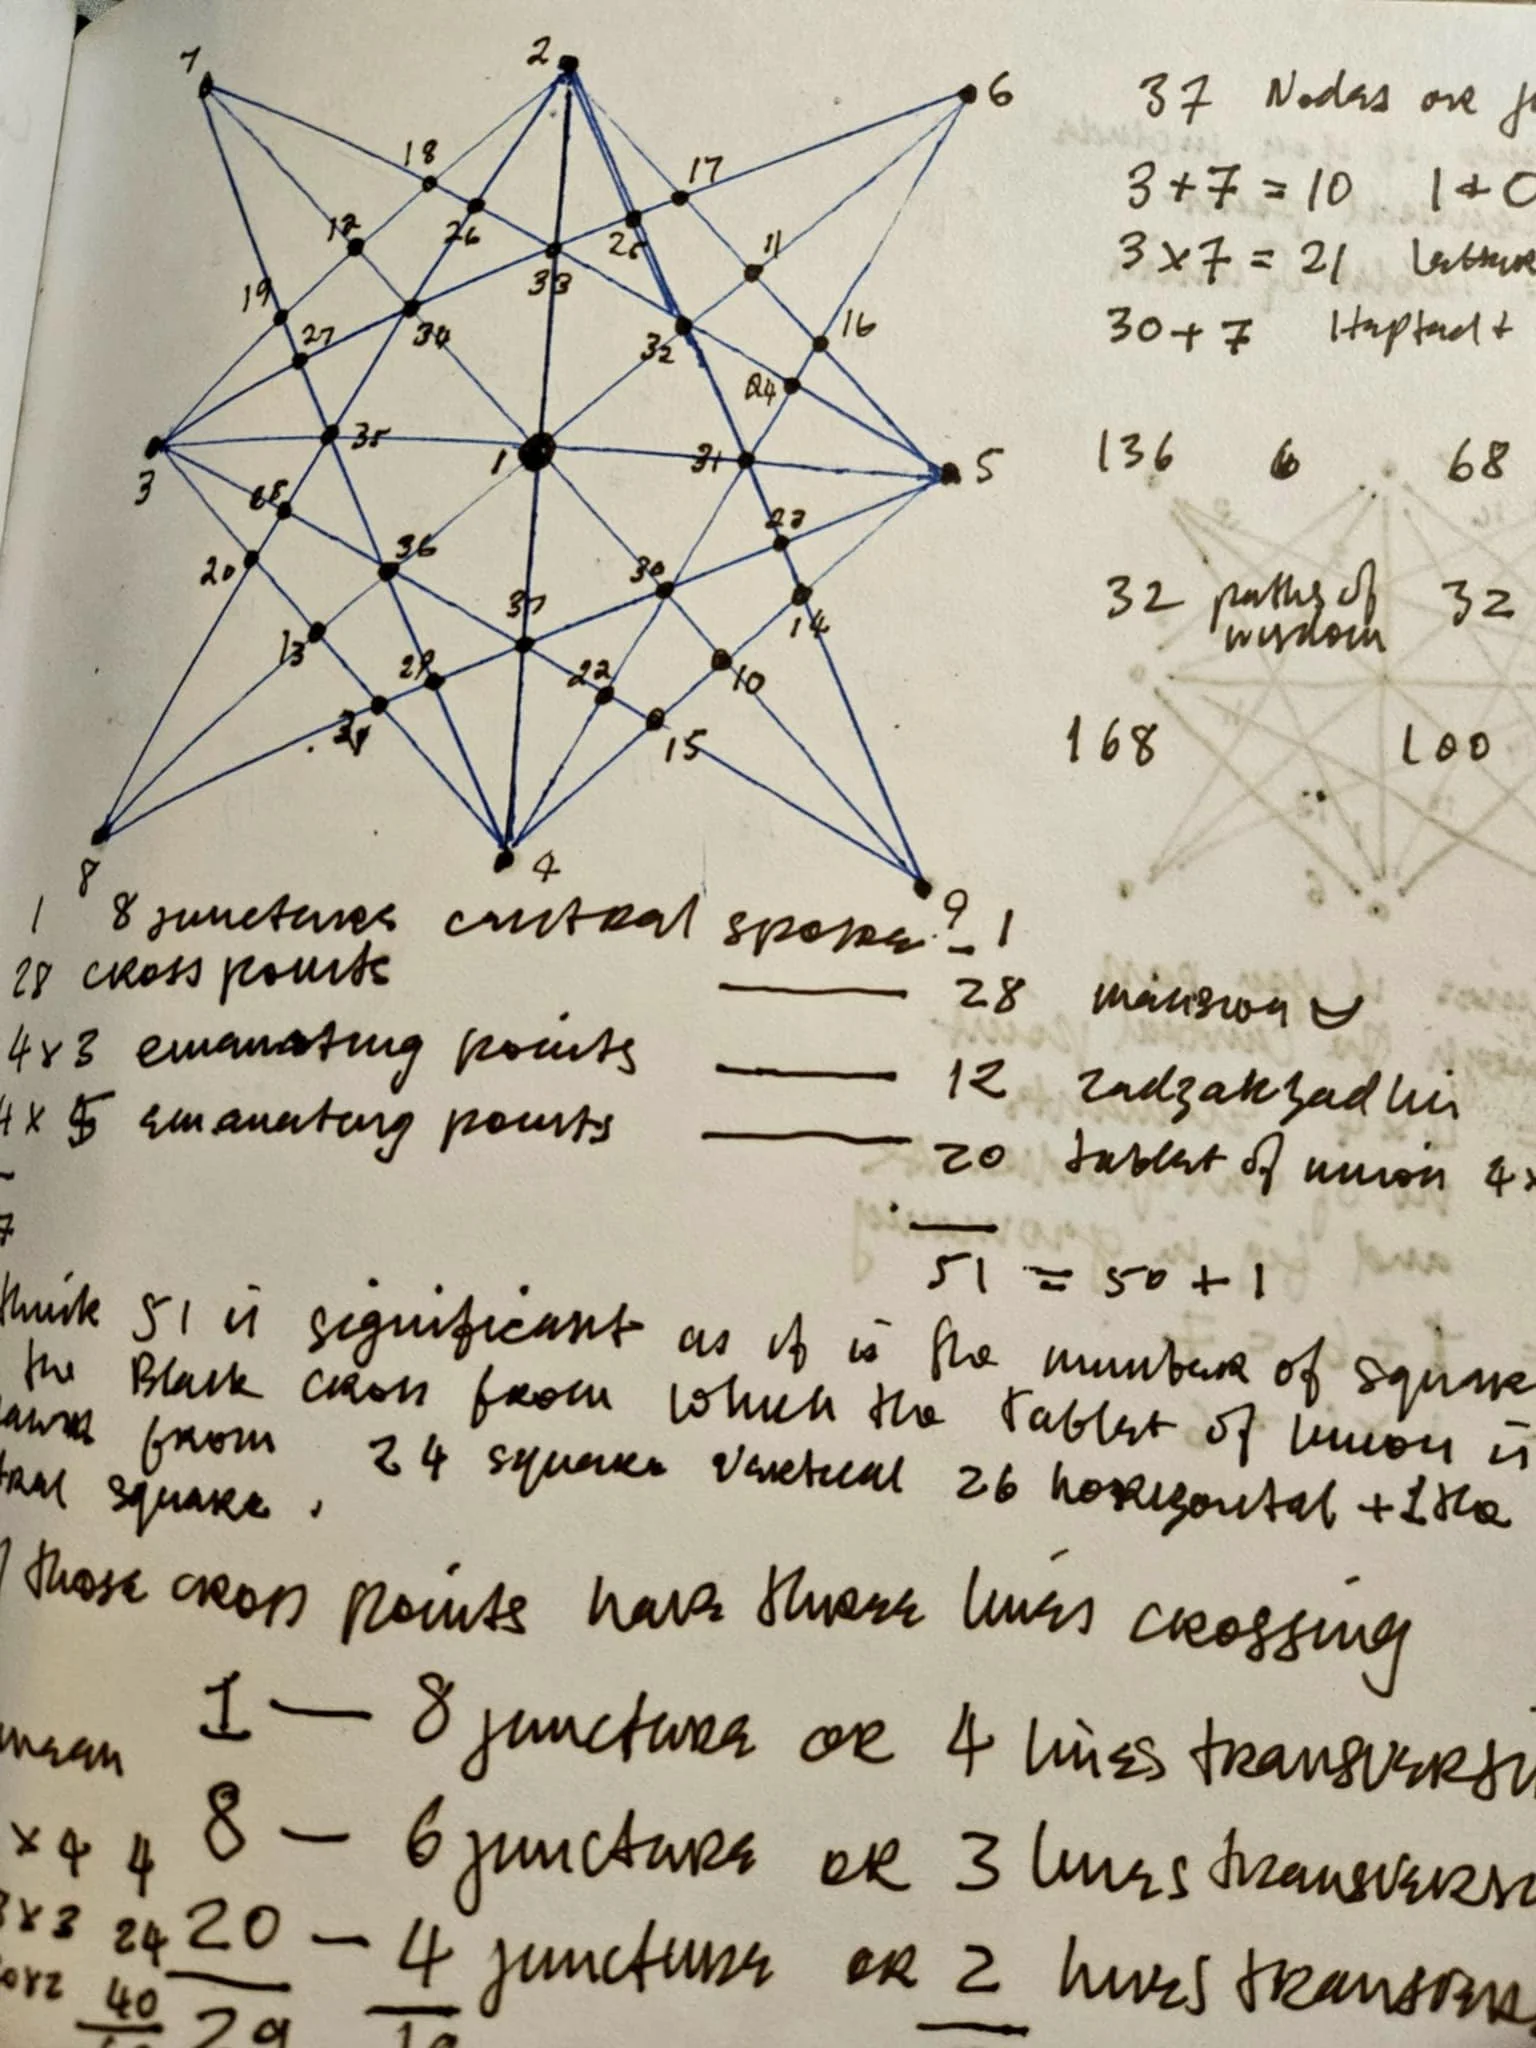 7 2 6
18 17
12 26 25 11
33
19 27 34 32 16
24
3 35 1 31 5
28 36 23
20 30
37 14
13 29 22 10
21 15
8 4 9
37 Nodes or
3 + 7 = 10 1 + 0
3 × 7 = 21
30 + 7 Heptad +
136 6 68
32 paths of wisdom 32
168 100
1 8 junctures central spoke - 1
28 cross points — 28 mansion
4 × 3 emanating points — 12
4 × 5 emanating points — 20 tablet of union 4 ×
7
51 = 50 + 1
think 51 is significant as it is the number of square
the Black cross from which the Tablet of Union is
from 24 square vertical 26 horizontal + 1 the
square.
those cross points have three lines crossing
1 — 8 juncture or 4 lines
mean
× 4 4 8 — 6 juncture or 3 lines
× 3 24 20 — 4 juncture or 2 lines
40 29